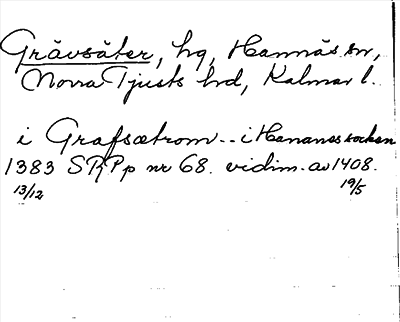 Grävsäter, hg, Hannäs sn,
Norra Tjusts hd, Kalmar l.
i Grafsætrom -- i Hananes socken
1383 SRPp nr 68. vidim. av 1408.
13/12 19/5